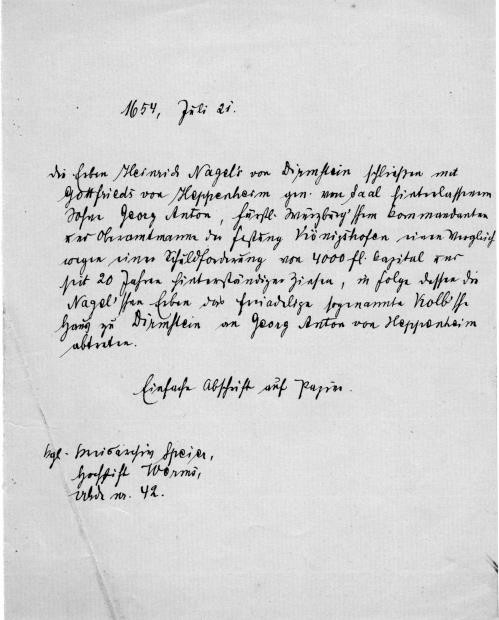 1654, Juli 21.
die Erben Heinrich Nagel's von Dirmstein schließen mit
Gottfrieds von Heppenheim gen. von Saal hinterlassenem
Sohne Georg Anton, fürstl. Würzburg'schem Commandanten
und Oberamtmann der Festung Königshofen einen Vergleich
wegen einer Schuldforderung von 4000 fl. Capital und
seit 20 Jahren hinterständiger Zinsen, in Folge dessen die
Nagel'schen Erben das freiadelige sogenannte Kolb'sche
Haus zu Dirmstein an Georg Anton von Heppenheim
abtreten.
Einfache Abschrift auf Papier.
kgl. Kreisarchiv Speier,
Hochstift Worms,
Urkde nr. 42.